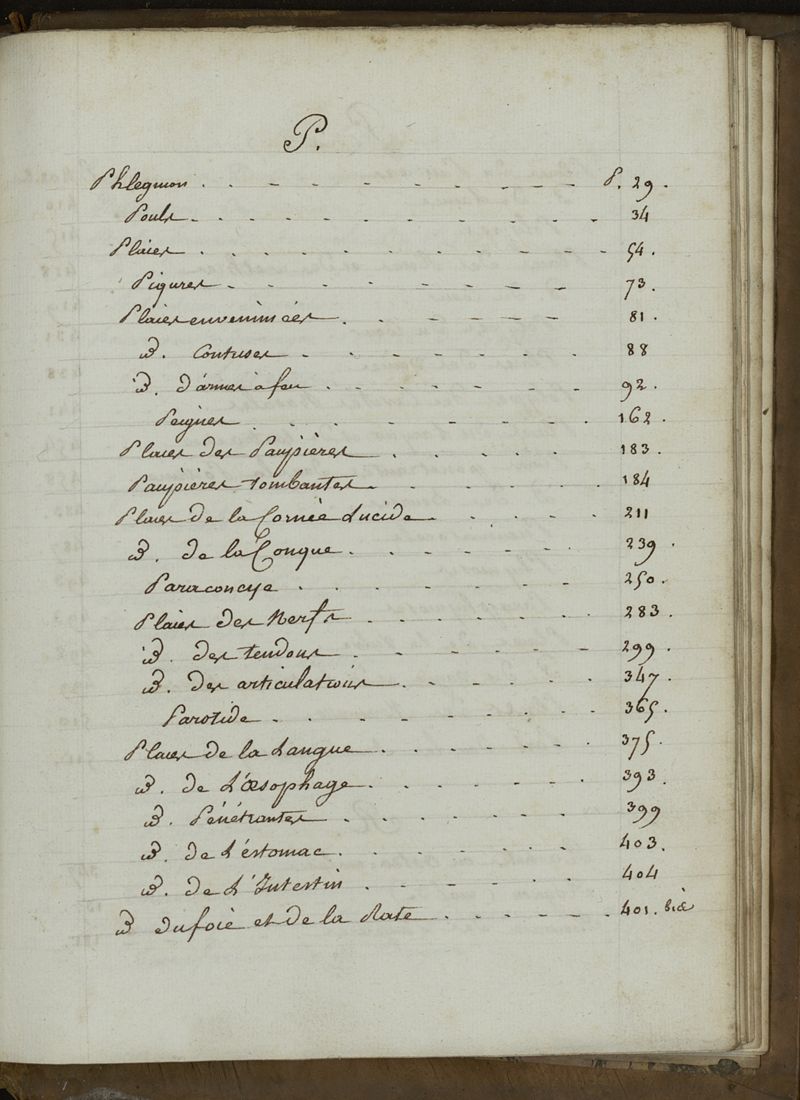 P.
Phlegmon . . - - - - - - - - - - P. 29.
Pouls . . - - - - - - - - - . 34
Plaies . . . . - - - - - - - - 54.
Piqures . - - - - - - - - - 73.
Plaies envenimées . . . - - - - - 81.
id. Contuses . . - . - - - . . 88
id. d'armes à feu . . - - - - - - . 92.
Peignes . . . . - - - - - . 162.
Plaies des Paupières . . . . . 183.
Paupières tombantes . - . . - - . 184
Plaies de la Cornée Lucide . . . . - . 211
id. de la Conque . . - - - - . 239.
Paraconcye . . - - - - - - - 250.
Plaies des Nerfs . . - - - - - 283.
id. des tendons . . - - - - - - 299.
id. des articulations . . - - . - . 347.
Parotide . . . - - - . - - . 365.
Plaies de la Langue . . . - - - . 375.
id. de L'œsophage . . - - - - . 393.
id. Pénétrantes . . . - - - - . 399
id. de L'éstomac . . . - - - - . 403.
id. de L'Intestin . . - - - - - 404
id du foie et de la Rate . . - . - - . 401. bis